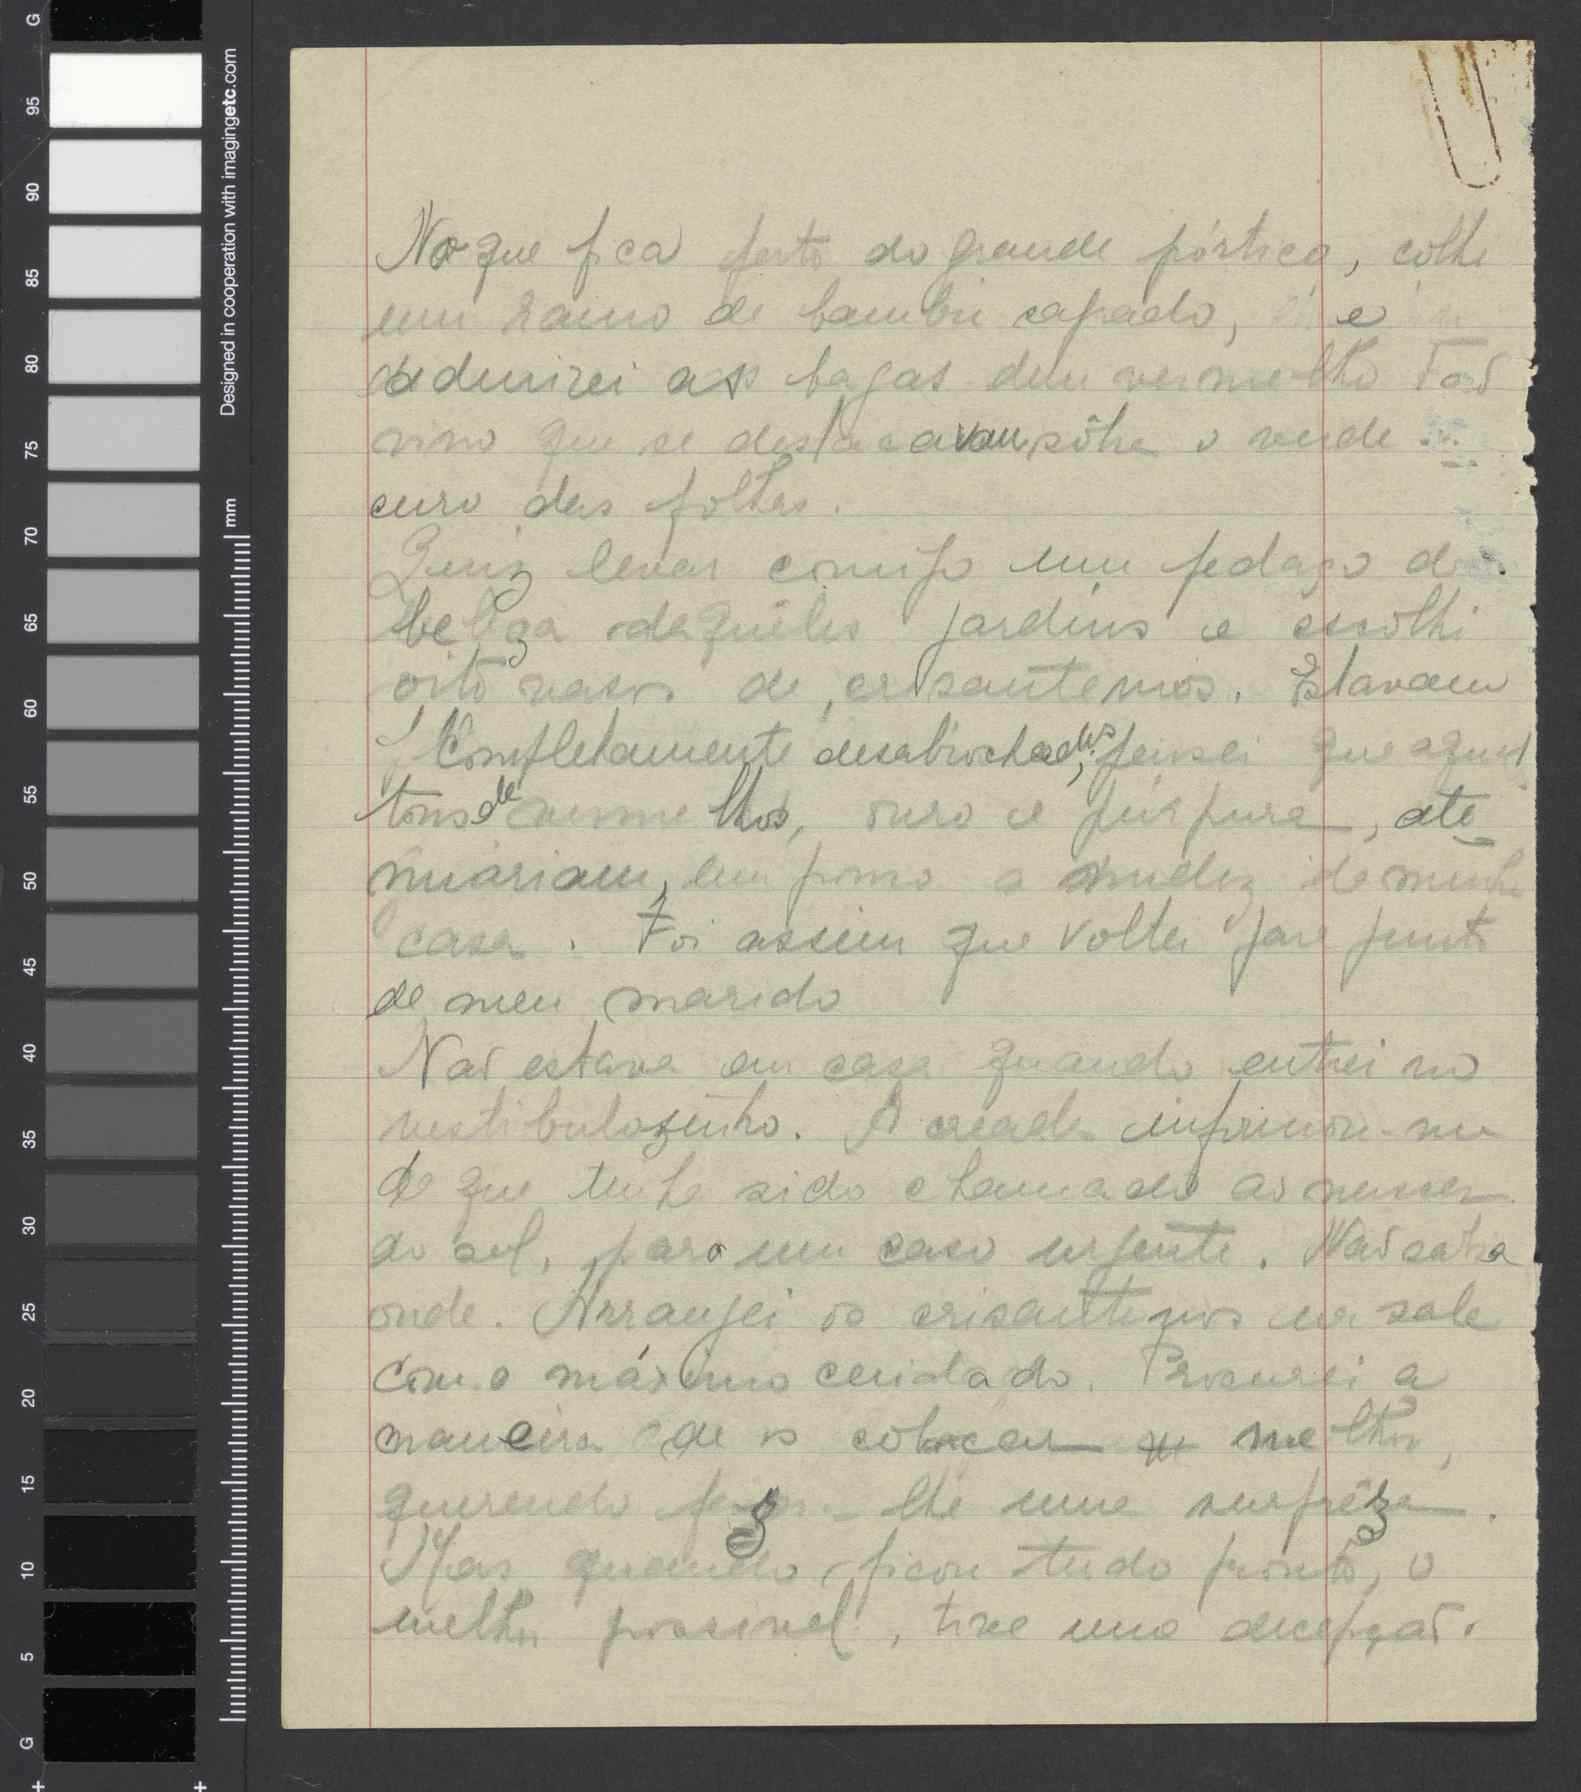 G
95
90
85
80
75
70
65
60
55
50
45
40
35
30
25
20
15
10
5
G
Designed in cooperation with imagingetc.com
mm
No que fica perto do grande pórtico, colhi
um ramo de bambú sagrado, e
admirei as bagas dum vermelho tão
vivo que se destacavam sôbre o verde
curo das folhas.
Quiz levar comigo um pedaço d
beleza daquêles jardins e escolhi
oito vasos de crisantemos. Estavam
Completamente desabrochados; pensei que aquel
tons de vermelhos, ouro e púrpura, ate
nuariam um pouco a nudez de minha
casa. Foi assim que voltei para junto
de meu marido
Não estava em casa quando entrei no
vestibulozinho. A creada informou-me
de que tinha sido chamado ao nascer
do sol, para um caso urgente. Não sabia
onde. Arranjei os crisantemos na sala
com o máximo cuidado. Procurei a
maneira de os colocar melhor,
querendo fazer-lhe uma surprêza.
Mas quando ficou tudo pronto, o
melhor possivel, tive uma decepção.